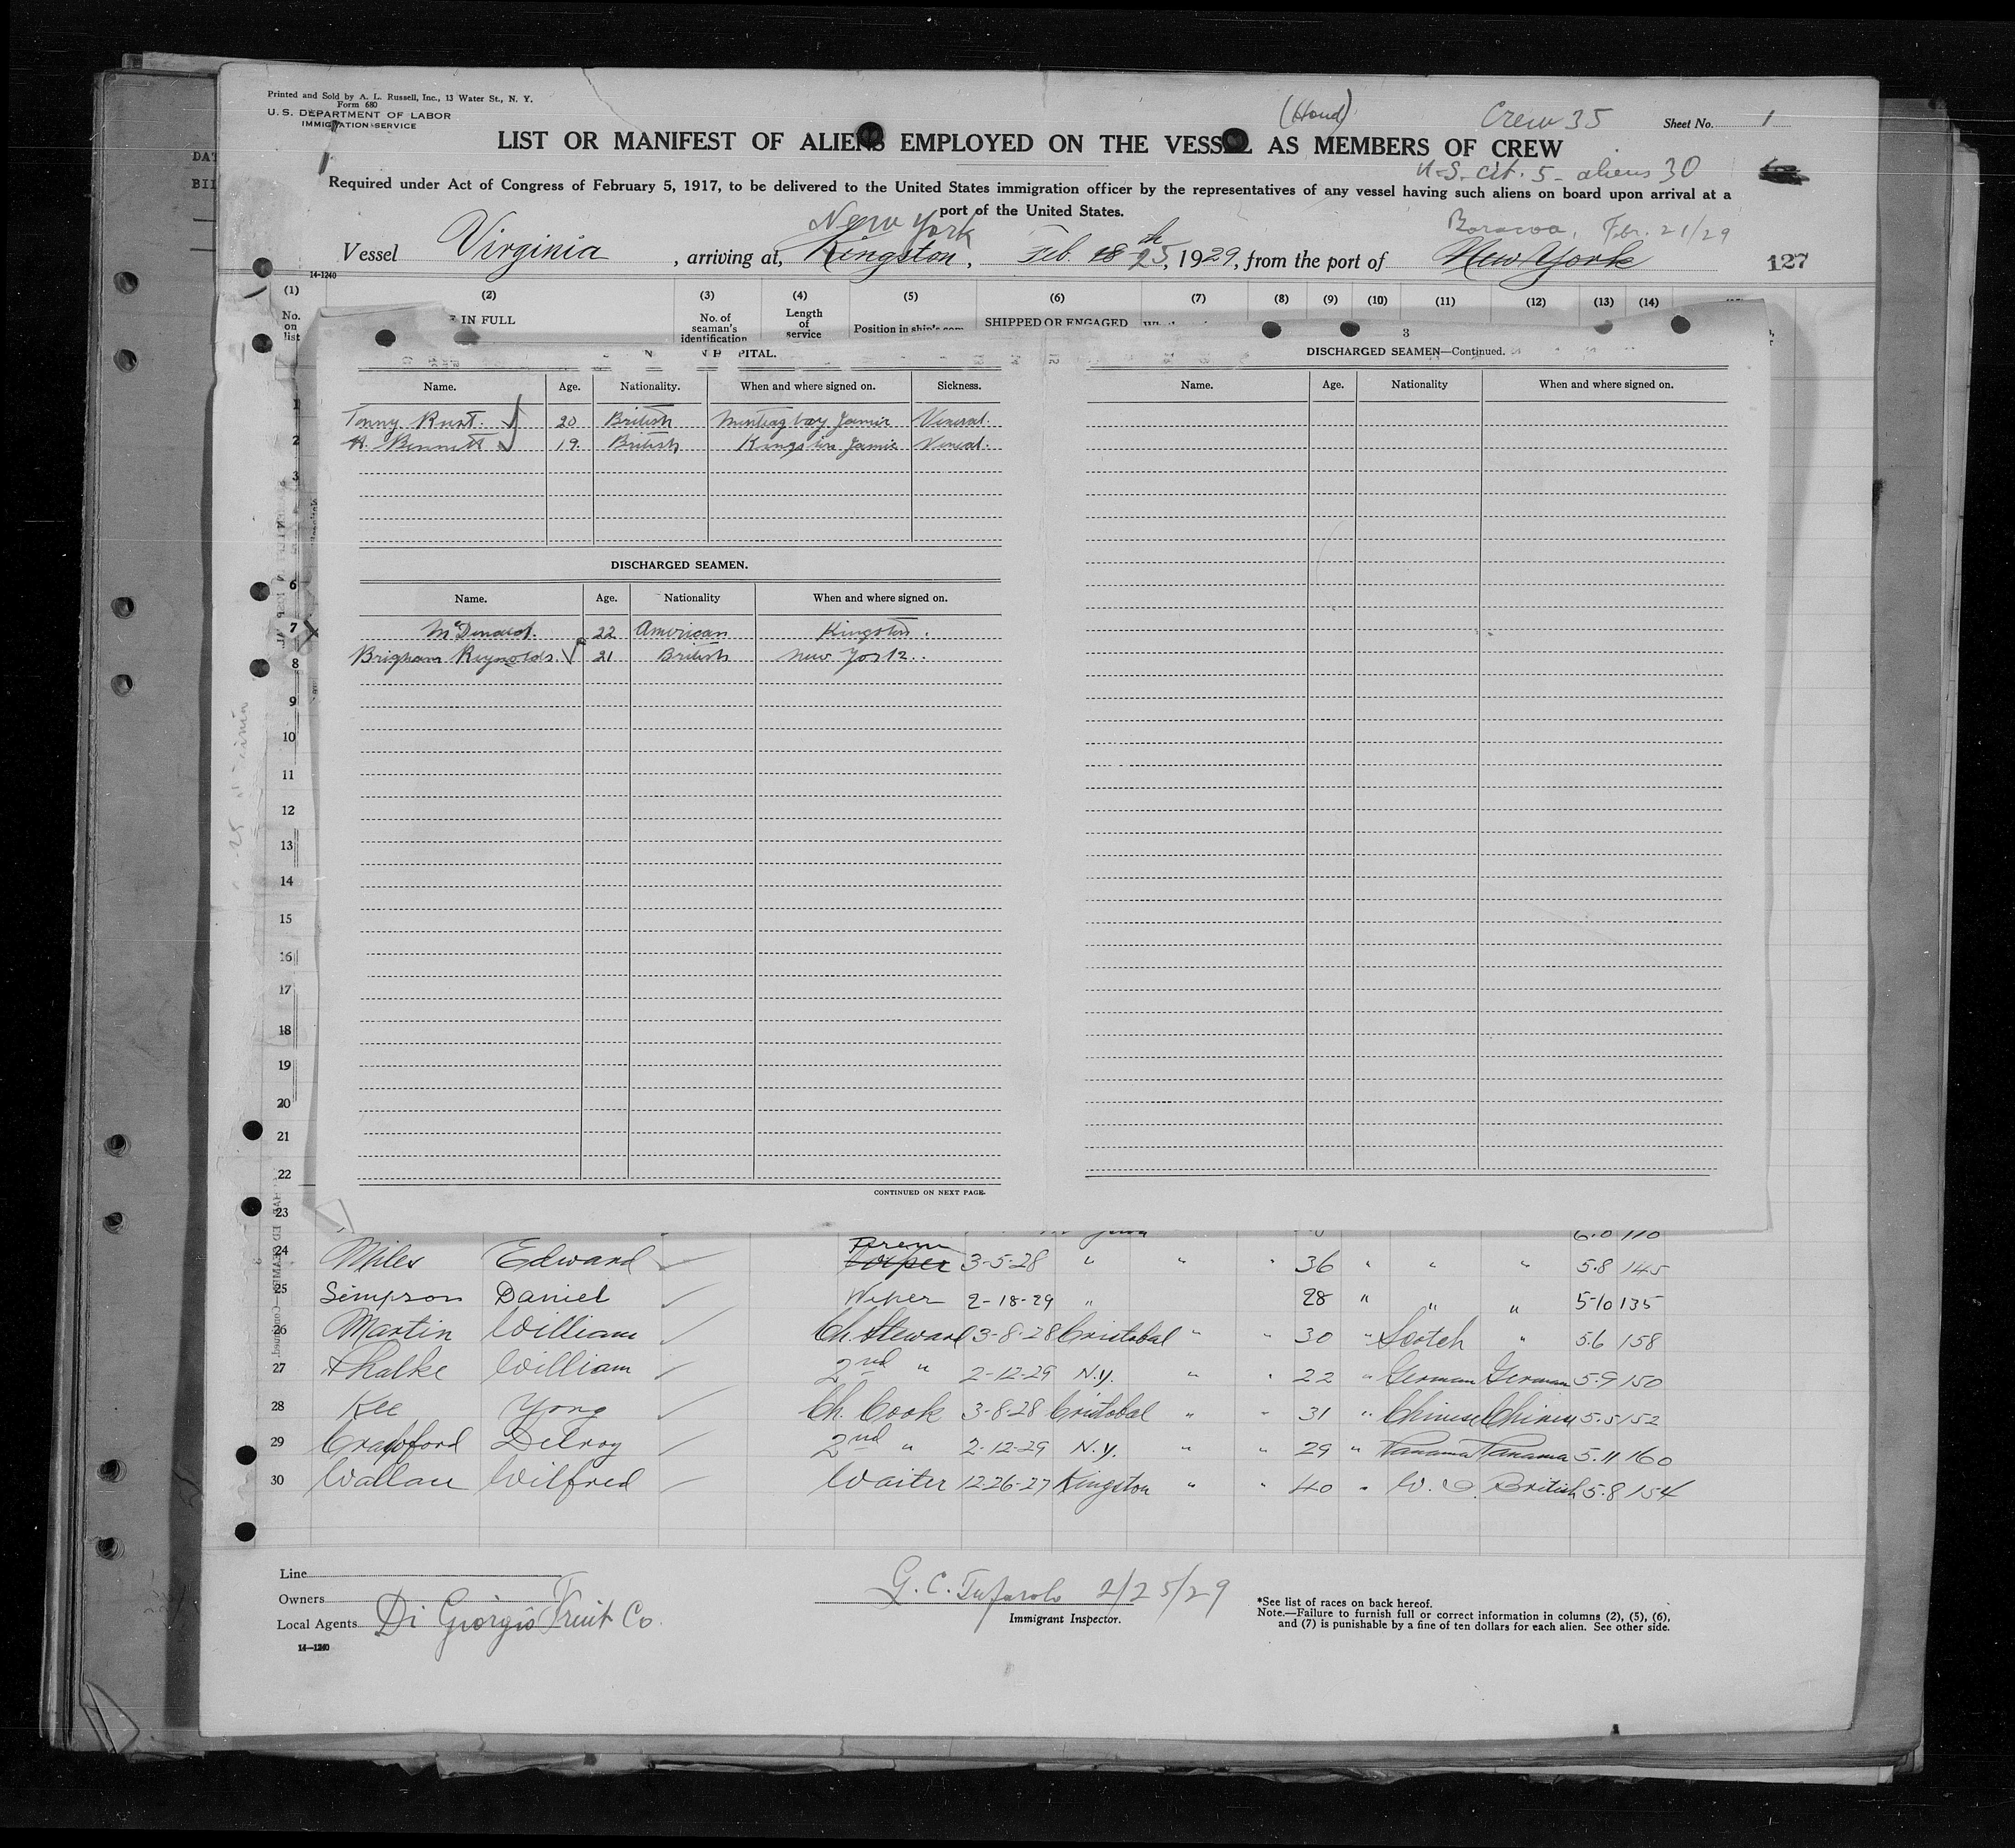 Printed and Sold by A. L. Russell, Inc., 13 Water St., N. Y.
Form 680
U. S. DEPARTMENT OF LABOR
IMMIGRATION SERVICE
(Hond)
Crew 35
Sheet No. 1
LIST OR MANIFEST OF ALIENS EMPLOYED ON THE VESSEL AS MEMBERS OF CREW
U.S. cit. 5 - aliens 30
Required under Act of Congress of February 5, 1917, to be delivered to the United States immigration officer by the representatives of any vessel having such aliens on board upon arrival at a
port of the United States.
New York
Baracoa, Febr. 21/29
Vessel Virginia, arriving at, Kingston, Feb. 18 25th, 1929, from the port of New York
127
14-1240
(1) (2) (3) (4) (5) (6) (7) (8) (9) (10) (11) (12) (13) (14)
No. on list
E IN FULL
No. of seaman's identification
Length of service
Position in ship's com
SHIPPED OR ENGAGED
PITAL.
Name. Age. Nationality. When and where signed on. Sickness.
Tonny Rust. 20 British Monteag bay Jamic Veneral.
H. Bennett 19. British Kingston Jamic Veneral.
DISCHARGED SEAMEN.
Name. Age. Nationality When and where signed on.
McDonald. 22 American Kingston.
Brigham Reynolds. 21 British New York.
CONTINUED ON NEXT PAGE.
3
DISCHARGED SEAMEN—Continued.
Name. Age. Nationality When and where signed on.
1
2
3
6
7
8
9
10
11
12
13
14
15
16
17
18
19
20
21
22
23
6.0 110
24 Miles Edward Firem Wiper 3-5-28 " " " 36 " " " 5.8 145
25 Simpson Daniel Wiper 2-18-29 " 28 " " " 5-10 135
26 Martin William Ch. Steward 3-8-28 Cristobal " " 30 " Scotch " 5.6 158
27 Thalke William 2nd " 2-12-29 N.Y. " " 22 " German German 5.9 150
28 Kee Yong Ch. Cook 3-8-28 Cristobal " " 31 " Chinese Chinese 5.5 152
29 Crawford Delroy 2nd " 2-12-29 N.Y. " " 29 " Panama Panama 5.11 160
30 Wallace Wilfred Waiter 12-26-27 Kingston " " 40 " W.I. British 5.8 154
Line
Owners
Local Agents Di Giorgio Fruit Co.
14-1240
G. C. Tufarolo 2/25/29
Immigrant Inspector.
*See list of races on back hereof.
Note.—Failure to furnish full or correct information in columns (2), (5), (6),
and (7) is punishable by a fine of ten dollars for each alien. See other side.